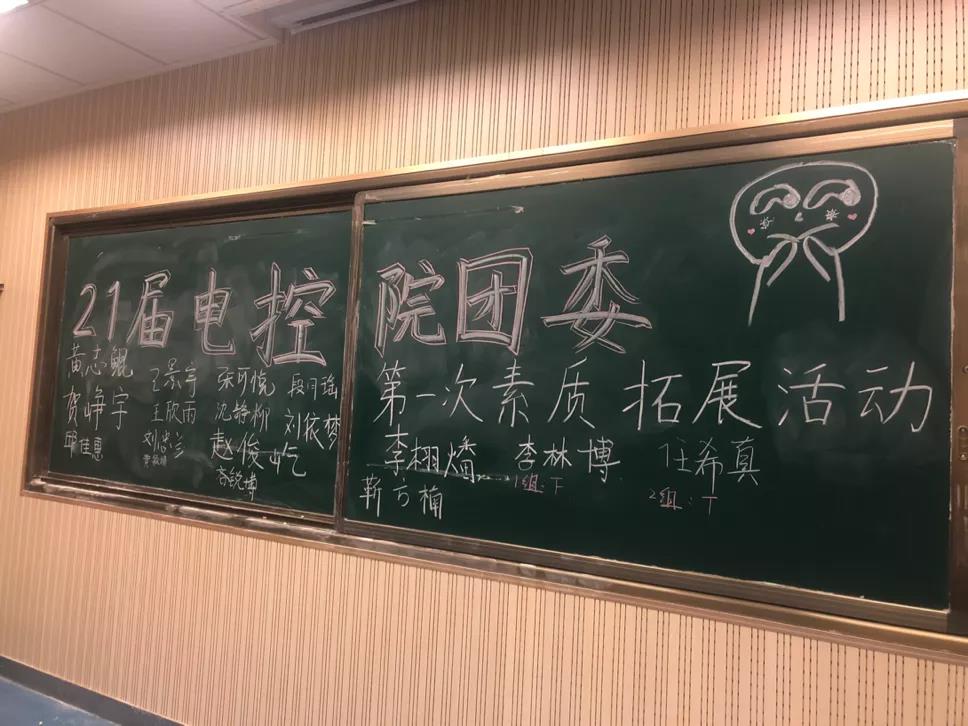 21届电控院团委
第一次素质拓展活动
黄志鲲 王景宇 张可悦 段月瑶
贺峥宇 王欣雨 沈静柳 刘依梦
邱佳惠 赵俊屹
李栩燔 李林博 任希真
1组:下 2组:下
靳方楠